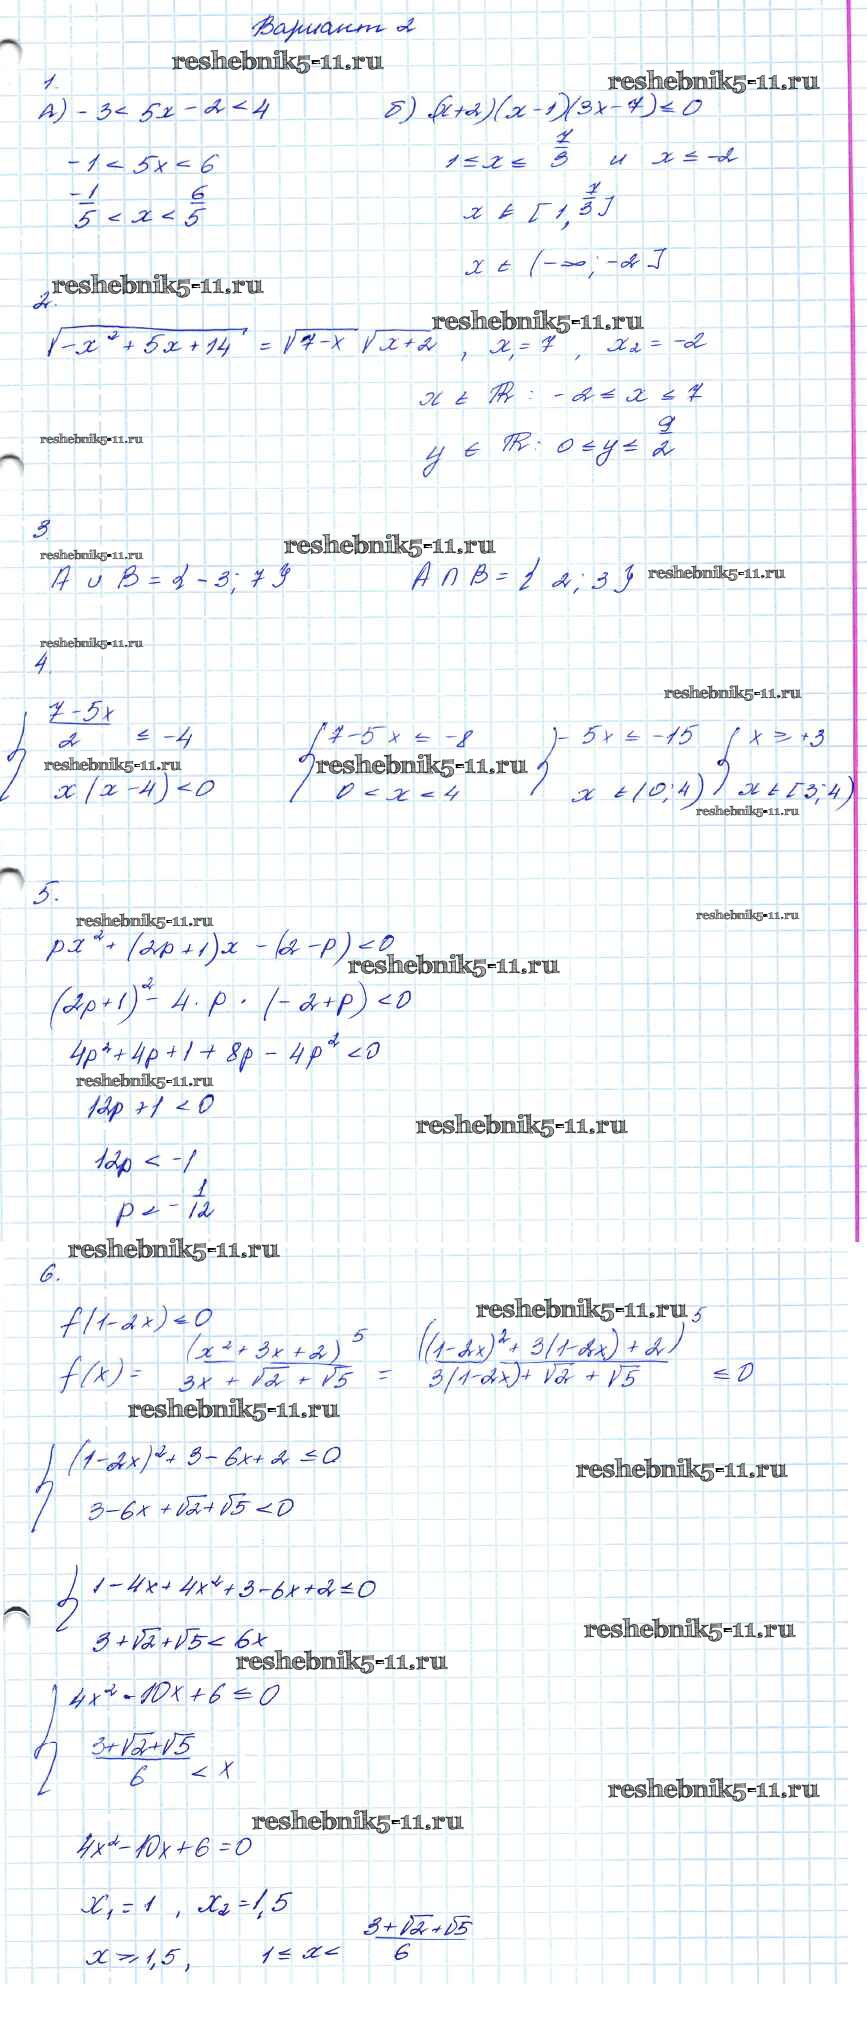 Вариант 2
reshebnik5-11.ru
reshebnik5-11.ru
1.
А) -3 < 5x - 2 < 4
б) (x+2)(x-1)(3x-7) ≤ 0
-1 < 5x < 6
1 ≤ x ≤ 7/3 и x ≤ -2
-1/5 < x < 6/5
x ∈ [1, 7/3]
x ∈ (-∞; -2]
reshebnik5-11.ru
2.
reshebnik5-11.ru
√(-x² + 5x + 14) = √(7-x) √(x+2) , x₁ = 7 , x₂ = -2
x ∈ R : -2 ≤ x ≤ 7
reshebnik5-11.ru
y ∈ R : 0 ≤ y ≤ 9/2
3
reshebnik5-11.ru
reshebnik5-11.ru
reshebnik5-11.ru
A ∪ B = {-3; 7}
A ∩ B = { 2; 3}
reshebnik5-11.ru
4.
reshebnik5-11.ru
{ (7-5x)/2 ≤ -4
{ 7-5x ≤ -8
{ -5x ≤ -15
{ x ≥ +3
reshebnik5-11.ru
reshebnik5-11.ru
x(x-4) < 0
0 < x < 4
x ∈ (0; 4)
x ∈ [3; 4)
reshebnik5-11.ru
5.
reshebnik5-11.ru
reshebnik5-11.ru
px² + (2p+1)x - (2-p) < 0
reshebnik5-11.ru
(2p+1)² - 4 · p · (-2+p) < 0
4p² + 4p + 1 + 8p - 4p² < 0
reshebnik5-11.ru
12p + 1 < 0
reshebnik5-11.ru
12p < -1
p < -1/12
reshebnik5-11.ru
6.
f(1-2x) ≤ 0
reshebnik5-11.ru
f(x) = (x² + 3x + 2)⁵/(3x + √2 + √5) = ((1-2x)² + 3(1-2x) + 2)⁵/(3(1-2x) + √2 + √5) ≤ 0
reshebnik5-11.ru
{ (1-2x)² + 3 - 6x + 2 ≤ 0
reshebnik5-11.ru
3 - 6x + √2 + √5 < 0
{ 1 - 4x + 4x² + 3 - 6x + 2 ≤ 0
reshebnik5-11.ru
3 + √2 + √5 < 6x
reshebnik5-11.ru
{ 4x² - 10x + 6 ≤ 0
(3+√2+√5)/6 < x
reshebnik5-11.ru
reshebnik5-11.ru
4x² - 10x + 6 = 0
x₁ = 1 , x₂ = 1,5
x ≥ 1,5 , 1 ≤ x < (3+√2+√5)/6